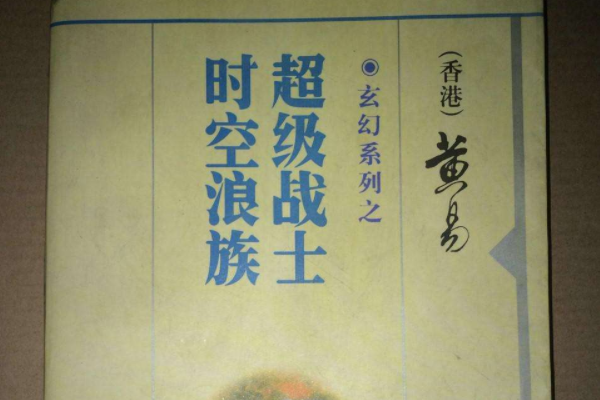 (香港)黄易
◉玄幻系列之
超级战士
时空浪族